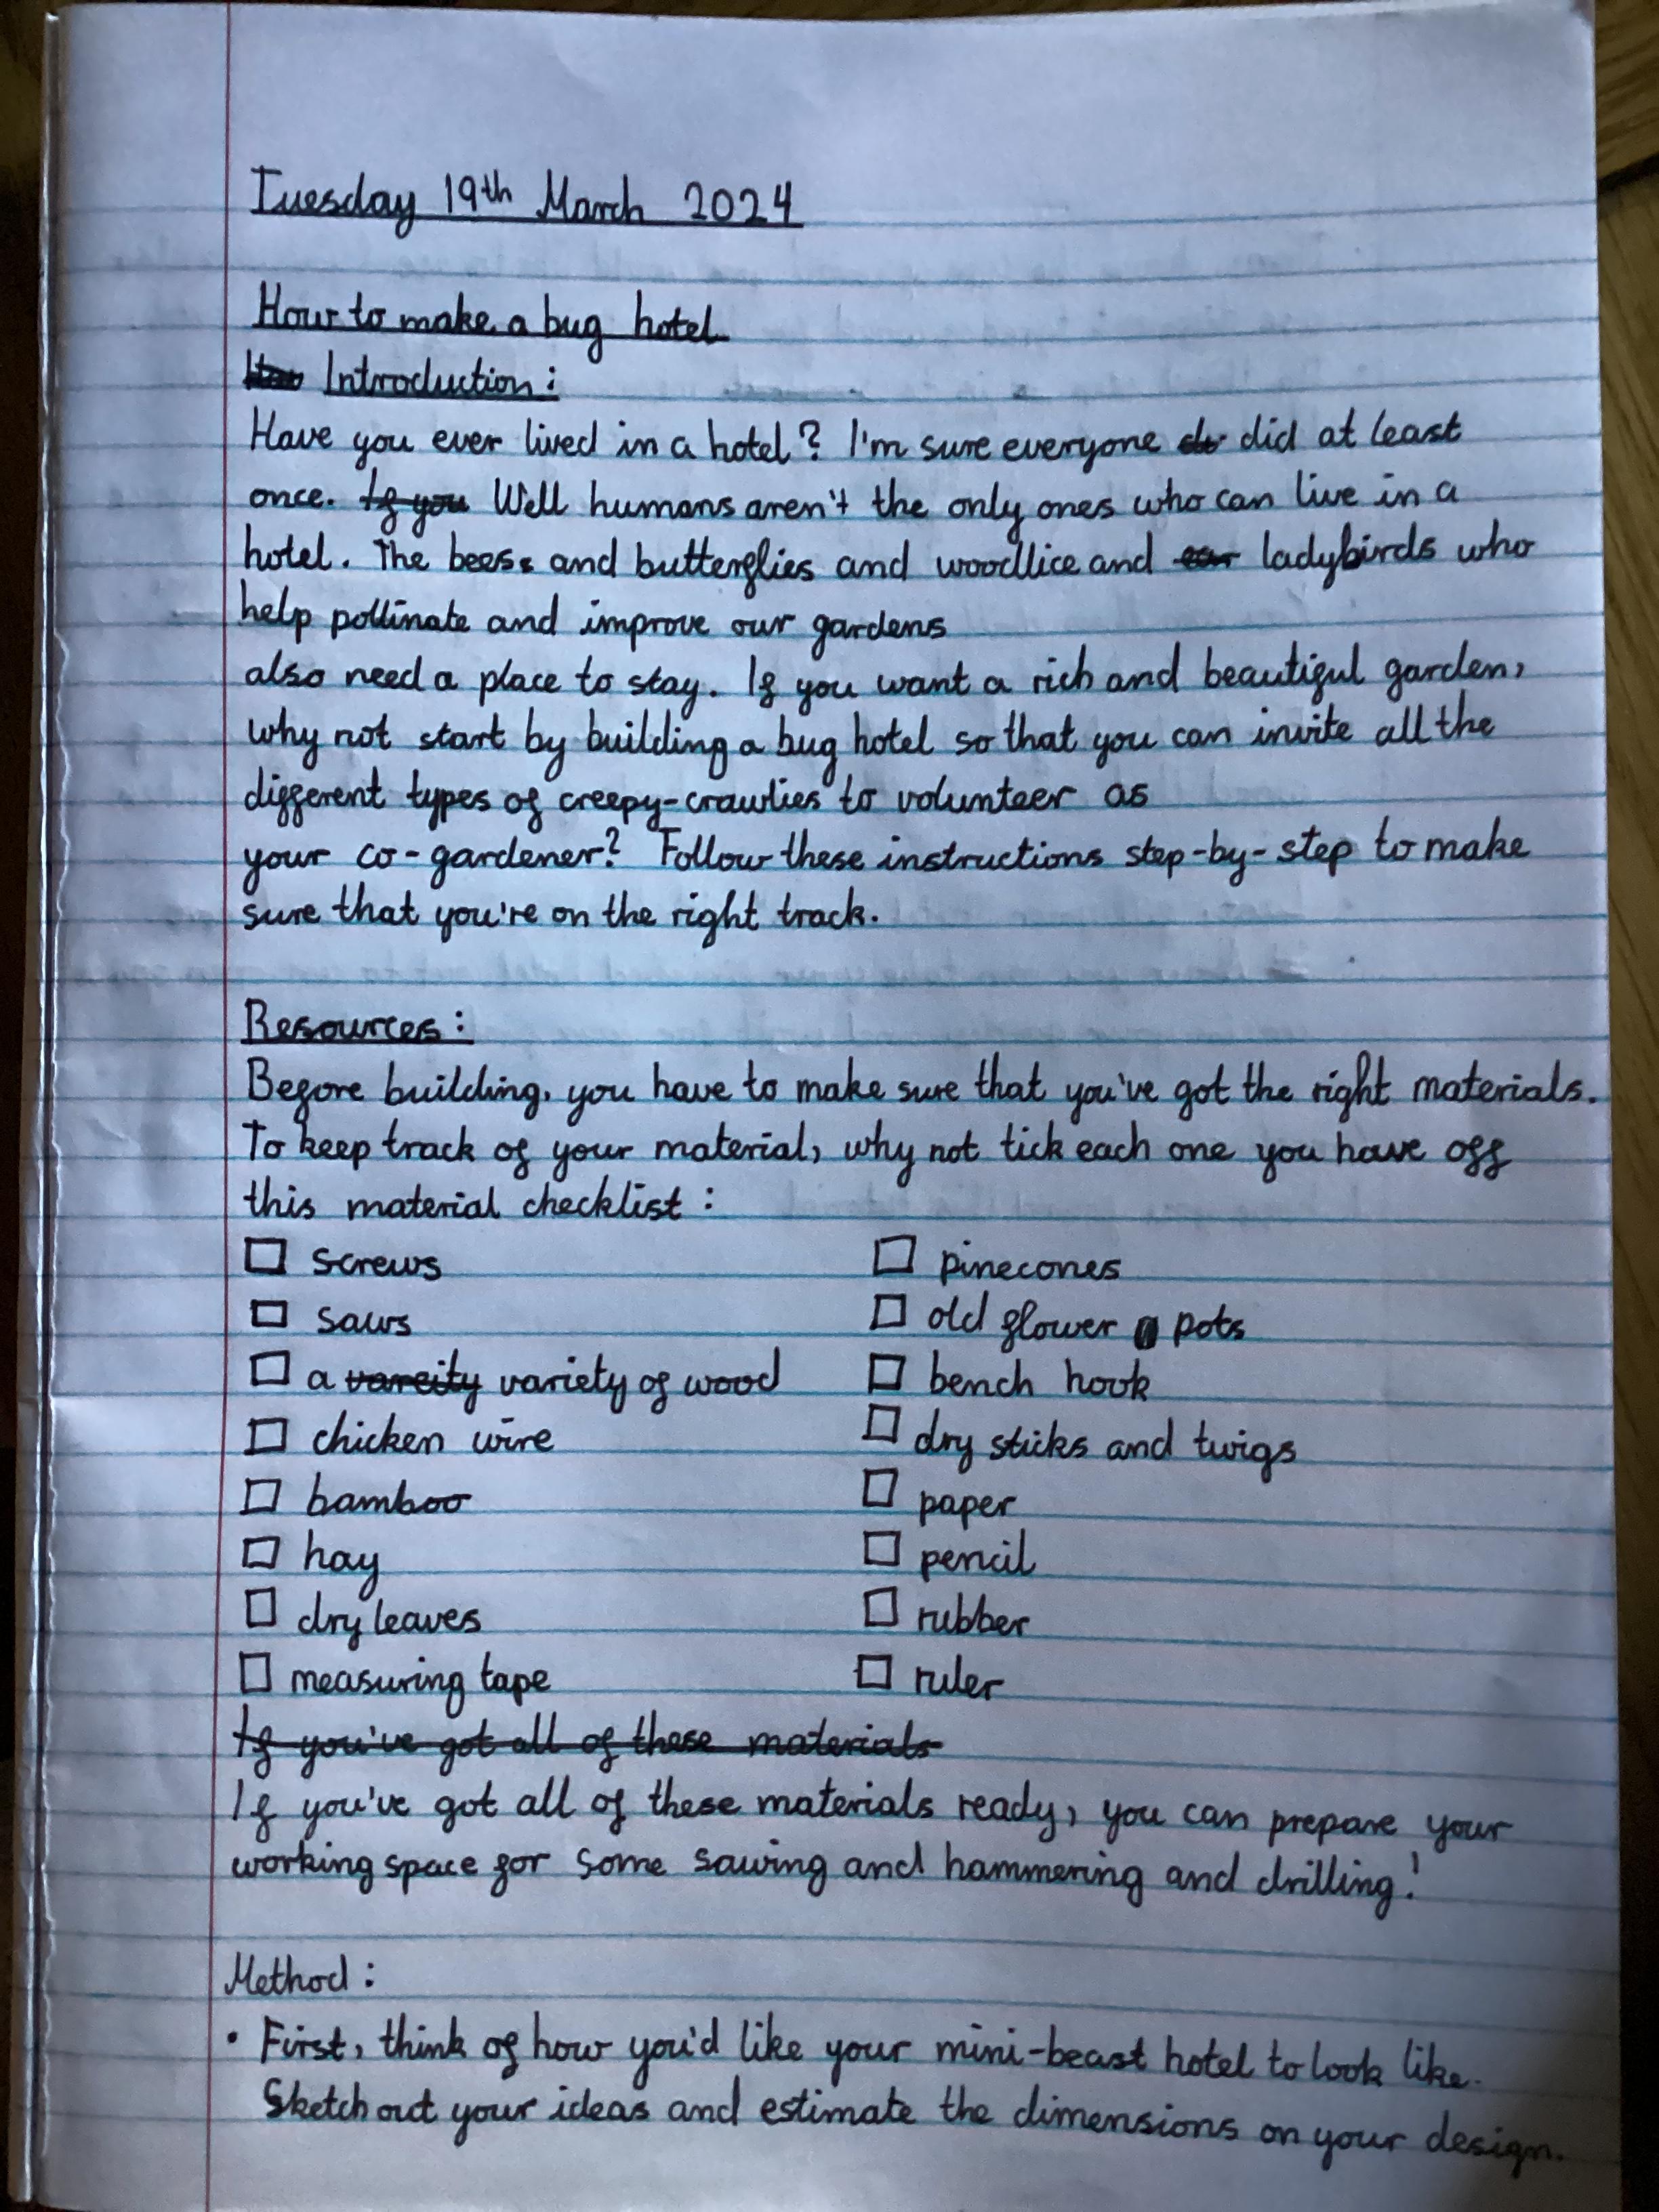 Tuesday 19th March 2024
How to make a bug hotel
Introduction:
Have you ever lived in a hotel? I'm sure everyone did at least
once. If you Well humans aren't the only ones who can live in a
hotel. The bees and butterflies and woodlice and ladybirds who
help pollinate and improve our gardens
also need a place to stay. If you want a rich and beautiful garden,
why not start by building a bug hotel so that you can invite all the
different types of creepy-crawlies to volunteer as
your co-gardener? Follow these instructions step-by-step to make
sure that you're on the right track.
Resources:
Before building, you have to make sure that you've got the right materials.
To keep track of your material, why not tick each one you have off
this material checklist:
☐ screws ☐ pinecones
☐ saws ☐ old flower pots
☐ a vareity variety of wood ☐ bench hook
☐ chicken wire ☐ dry sticks and twigs
☐ bamboo ☐ paper
☐ hay ☐ pencil
☐ dry leaves ☐ rubber
☐ measuring tape ☐ ruler
If you've got all of these materials
If you've got all of these materials ready, you can prepare your
working space for some sawing and hammering and drilling!
Method:
• First, think of how you'd like your mini-beast hotel to look like.
Sketch out your ideas and estimate the dimensions on your design.